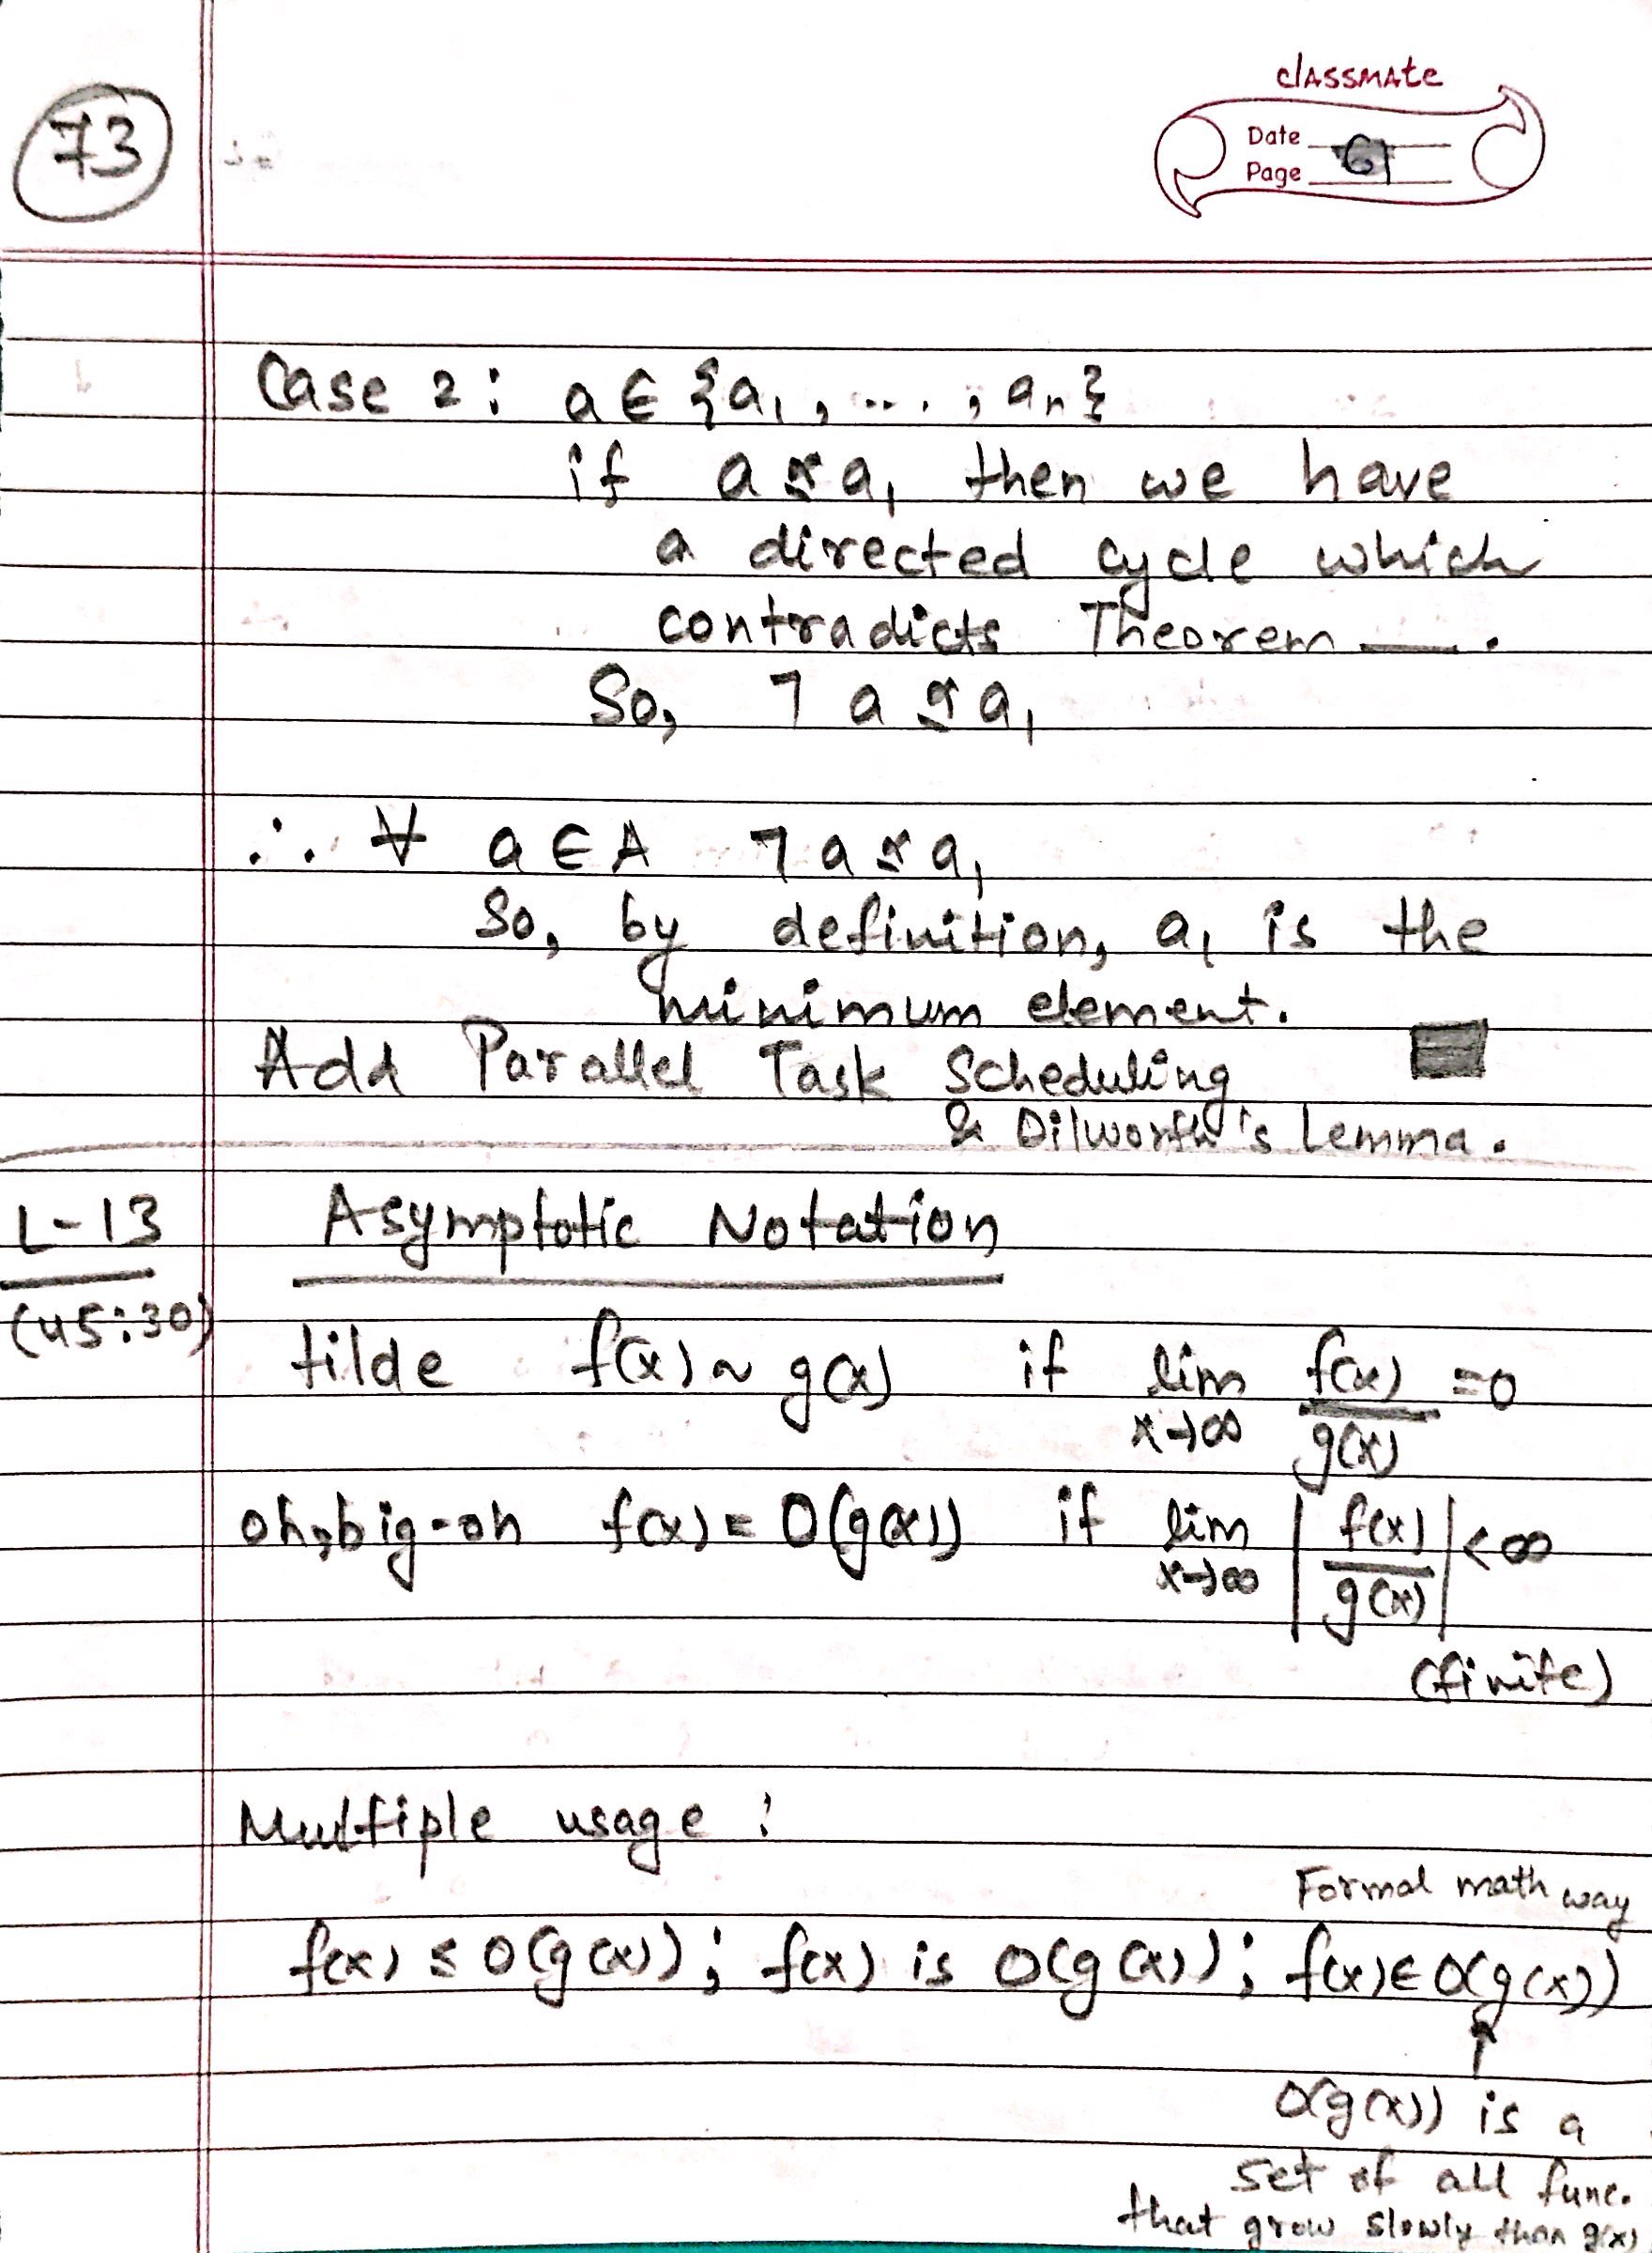 73
classmate
Date
Page 61
Case 2: a ∈ {a₁, ..., aₙ}
if a ⪯ a₁ then we have
a directed cycle which
contradicts Theorem ___.
So, ¬ a ⪯ a₁
∴ ∀ a ∈ A ¬ a ⪯ a₁
So, by definition, a₁ is the
minimum element.
Add Parallel Task Scheduling
& Dilworth's Lemma.
L-13 Asymptotic Notation
(45:30)
tilde f(x) ~ g(x) if lim x→∞ f(x)/g(x) = 0
oh, big-oh f(x) = O(g(x)) if lim x→∞ |f(x)/g(x)| < ∞
(finite)
Multiple usage :
Formal math way
f(x) ≤ O(g(x)); f(x) is O(g(x)); f(x) ∈ O(g(x))
↑
O(g(x)) is a
set of all func.
that grow slowly than g(x)